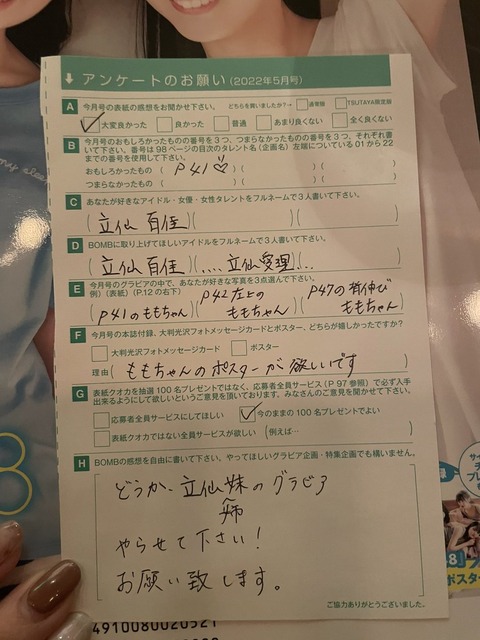 ↓ アンケートのお願い(2022年5月号)
A 今月号の表紙の感想をお聞かせ下さい。 どちらを買いましたか?→ 通常版 TSUTAYA限定版
大変良かった 良かった 普通 あまり良くない 全く良くない
B 今月号のおもしろかったものの番号を3つ、つまらなかったものの番号を3つ、それぞれ書
いて下さい。番号は98ページの目次のタレント名(企画名)左端についている01から22
までの番号を使用して下さい。
おもしろかったもの ( P41♡ )( )( )
つまらなかったもの ( )( )( )
C あなたが好きなアイドル・女優・女性タレントをフルネームで3人書いて下さい。
( 立仙 百佳 )( )( )
D BOMBに取り上げてほしいアイドルをフルネームで3人書いて下さい。
( 立仙 百佳 )(....立仙愛理)(..
E 今月号のグラビアの中で、あなたが好きな写真を3点選んで下さい。
例)(表紙)(P.12の右下)
(P41のももちゃん)(P42左上のももちゃん)(P47の背伸びももちゃん)
F 今月号の本誌付録、大判光沢フォトメッセージカードとポスター、どちらが嬉しかったですか?
大判光沢フォトメッセージカード ポスター
理由( ももちゃんのポスターが欲しいです )
G 表紙クオカを抽選100名プレゼントではなく、応募者全員サービス(P97参照)で必ず入手
出来るようにして欲しいというご意見を頂いております。みなさんのご意見を聞かせて下さい。
応募者全員サービスにしてほしい 今のままの100名プレゼントでよい
表紙クオカではない全員サービスが欲しい (例えば… )
H BOMBの感想を自由に書いて下さい。やってほしいグラビア企画・特集企画でも構いません。
どうか、立仙姉妹のグラビア
やらせて下さい!
お願い致します。
ご協力ありがとうございました。
4910080020521